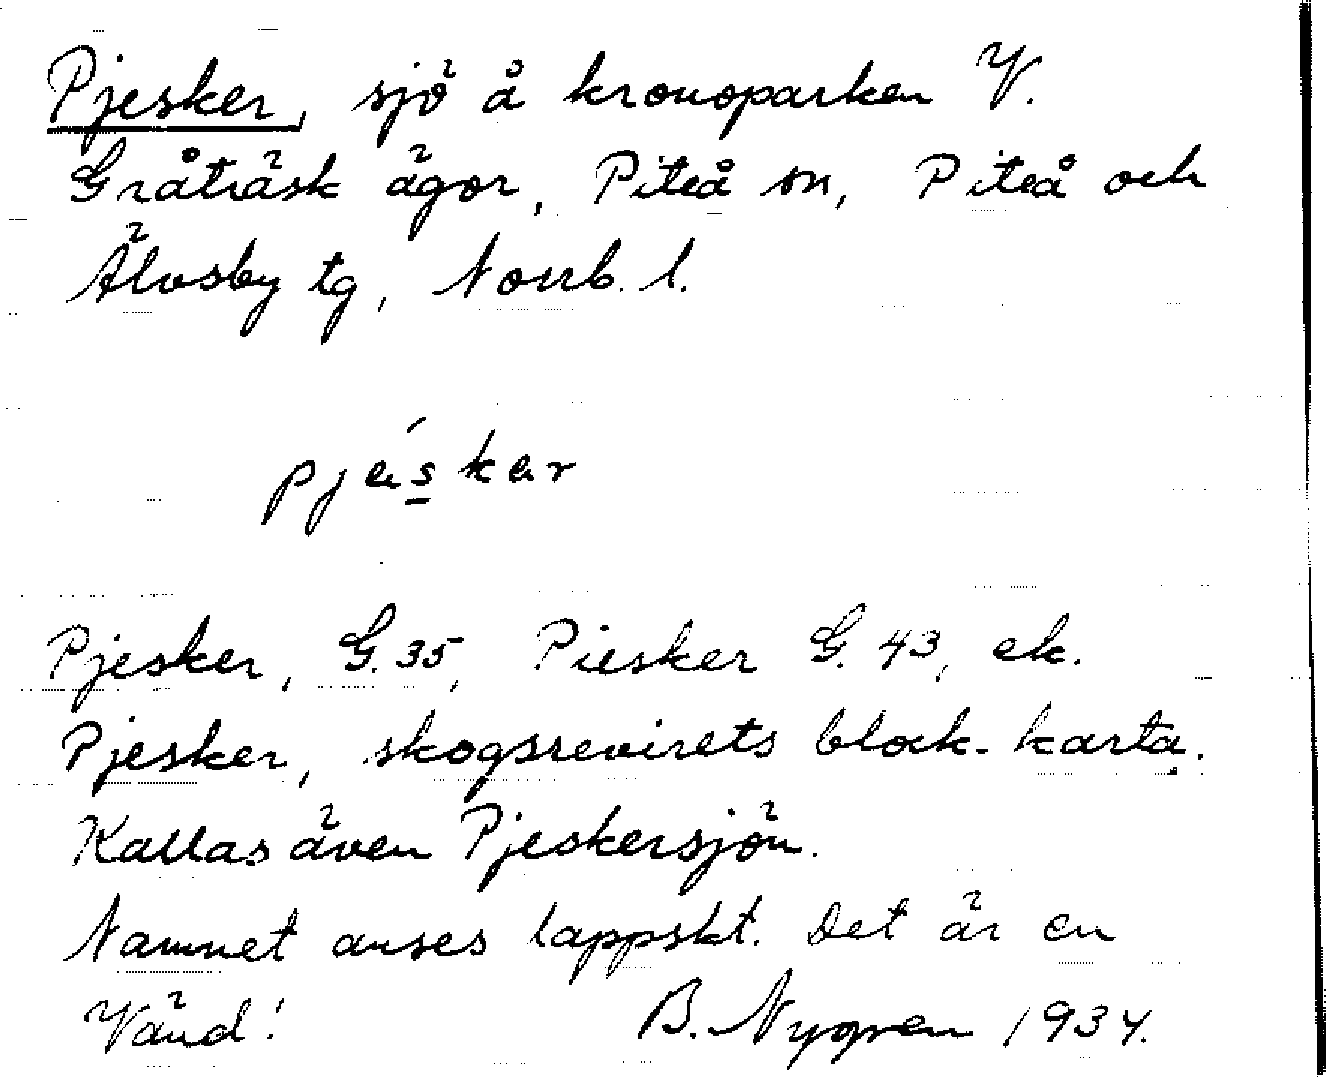 Pjesker, sjö å kronoparken V.
Gråträsk ägor, Piteå sn, Piteå och
Älvsby tg, Norrb. l.
pjèsker
Pjesker, G. 35, Piesker G. 43, ek.
Pjesker, skogsrevirets block-karta.
Kallas även Pjeskersjön.
Namnet anses lappskt. Det är en
Vänd! B. Nygren 1934.